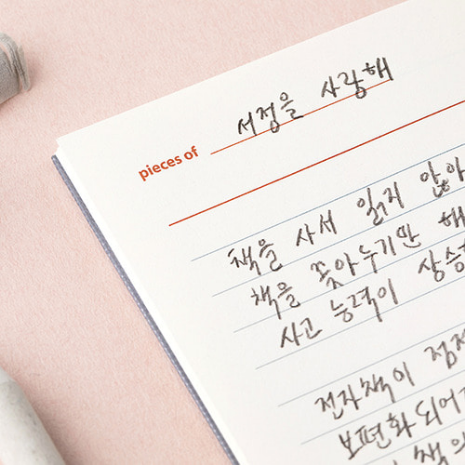 서정을 사랑해
pieces of
책을 사서 읽지 않아
책을 꽂아누기만 해
사고 능력이 상승
전자책이 점
보편화되어
책의